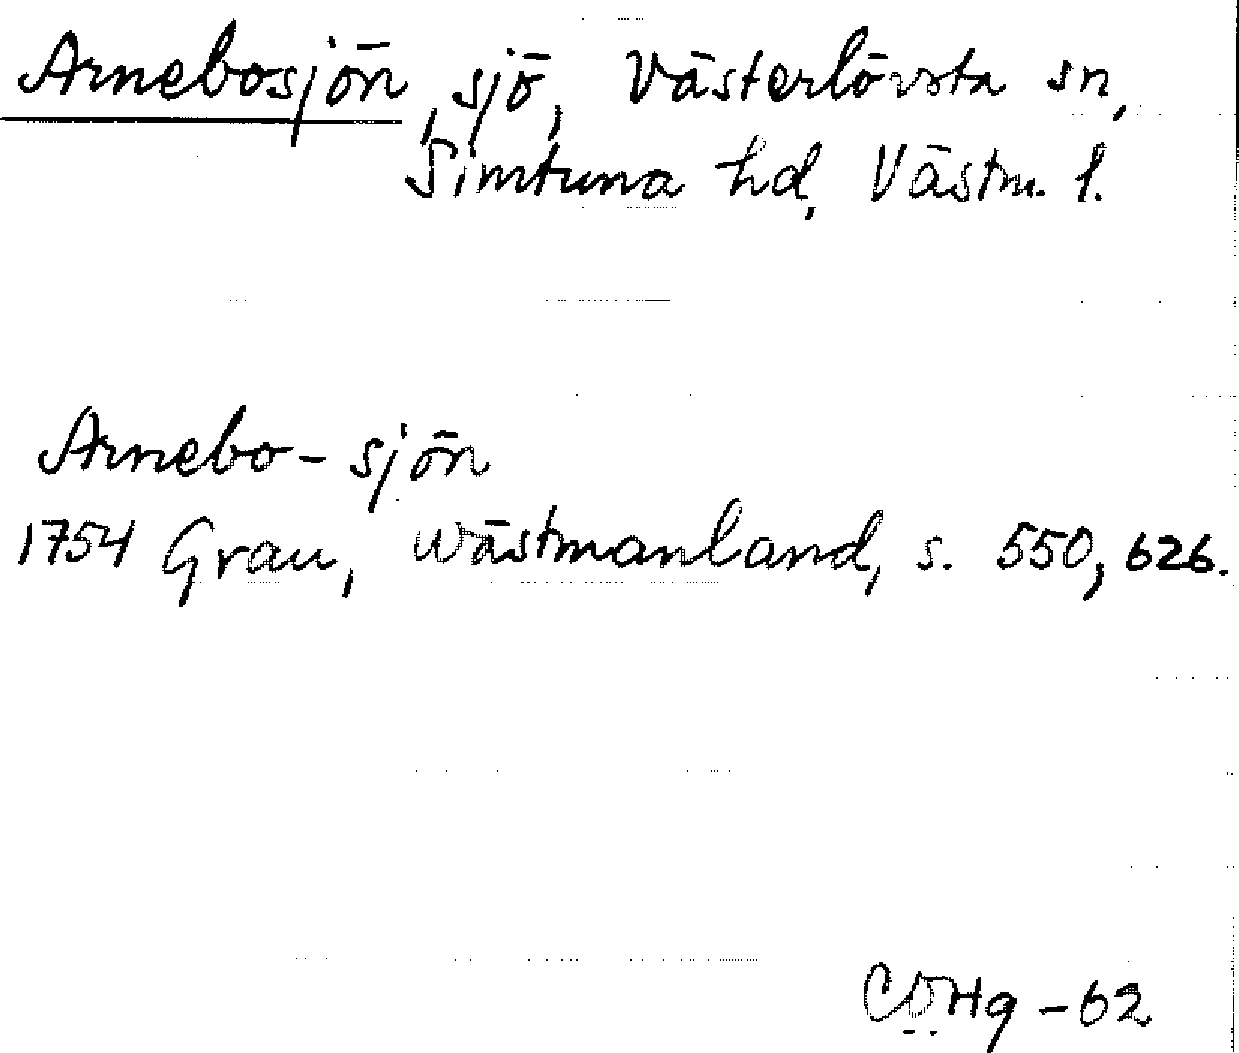 Arnebosjön, sjö, Västerlövsta sn,
Simtuna hd, Västm. l.
Arnebo-sjön
1754 Grau, Wästmanland, s. 550, 626.
CÖHg -62